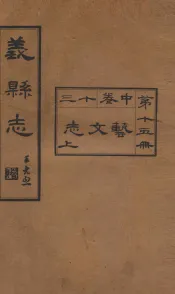 義縣志
第十五冊
中卷十三
藝文志上